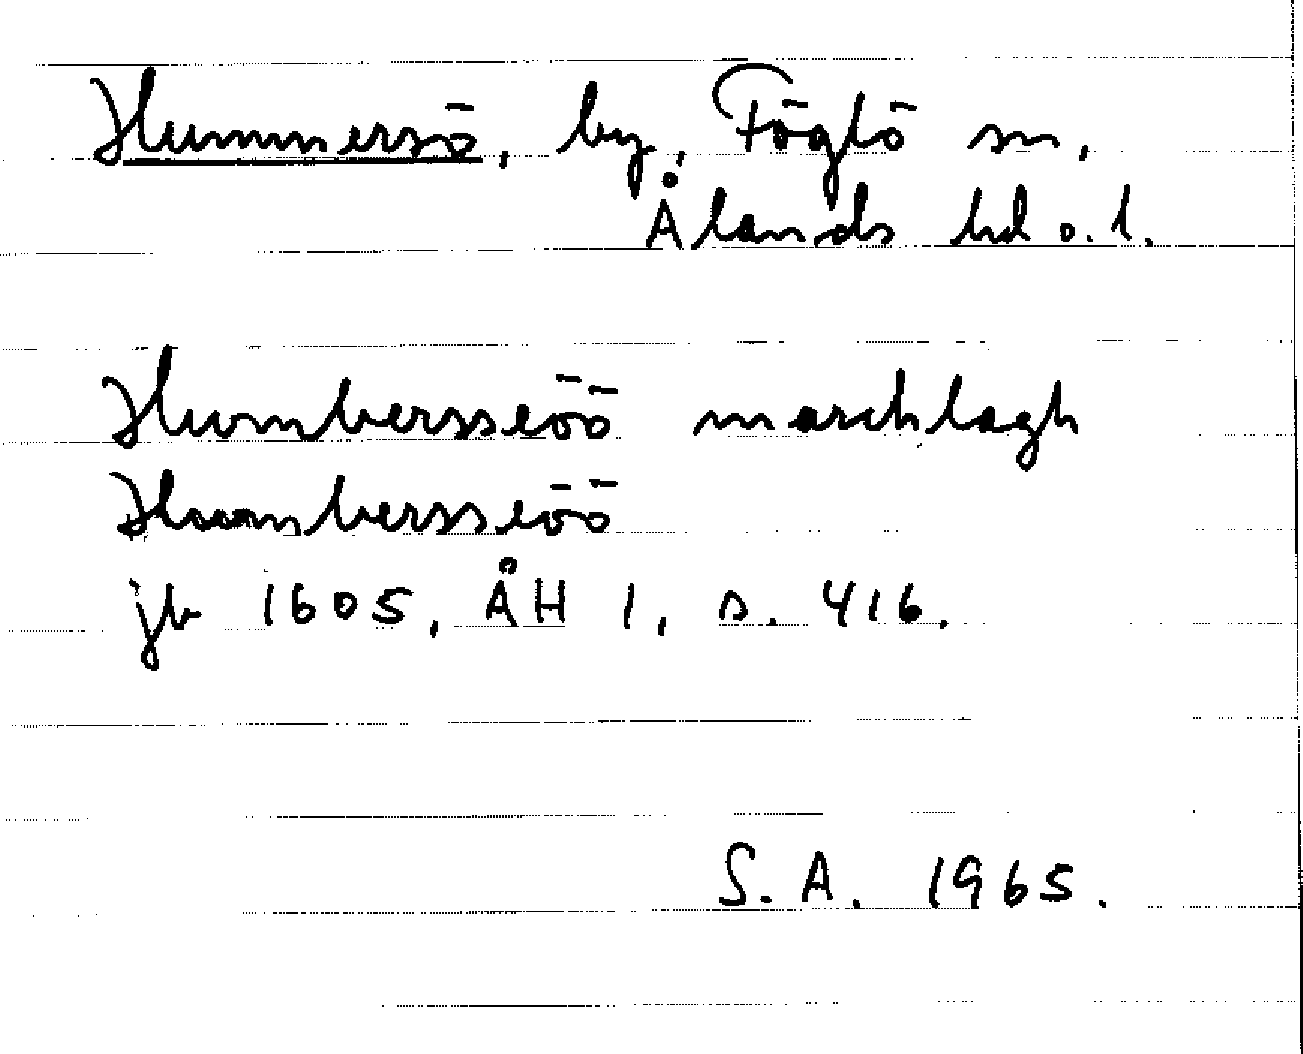 Hummersö, by, Föglö sn,
Ålands hd o. l.
Humbersseöö marchlagh
Humbersseöö
jb 1605, ÅH 1, s. 416.
S. A. 1965.